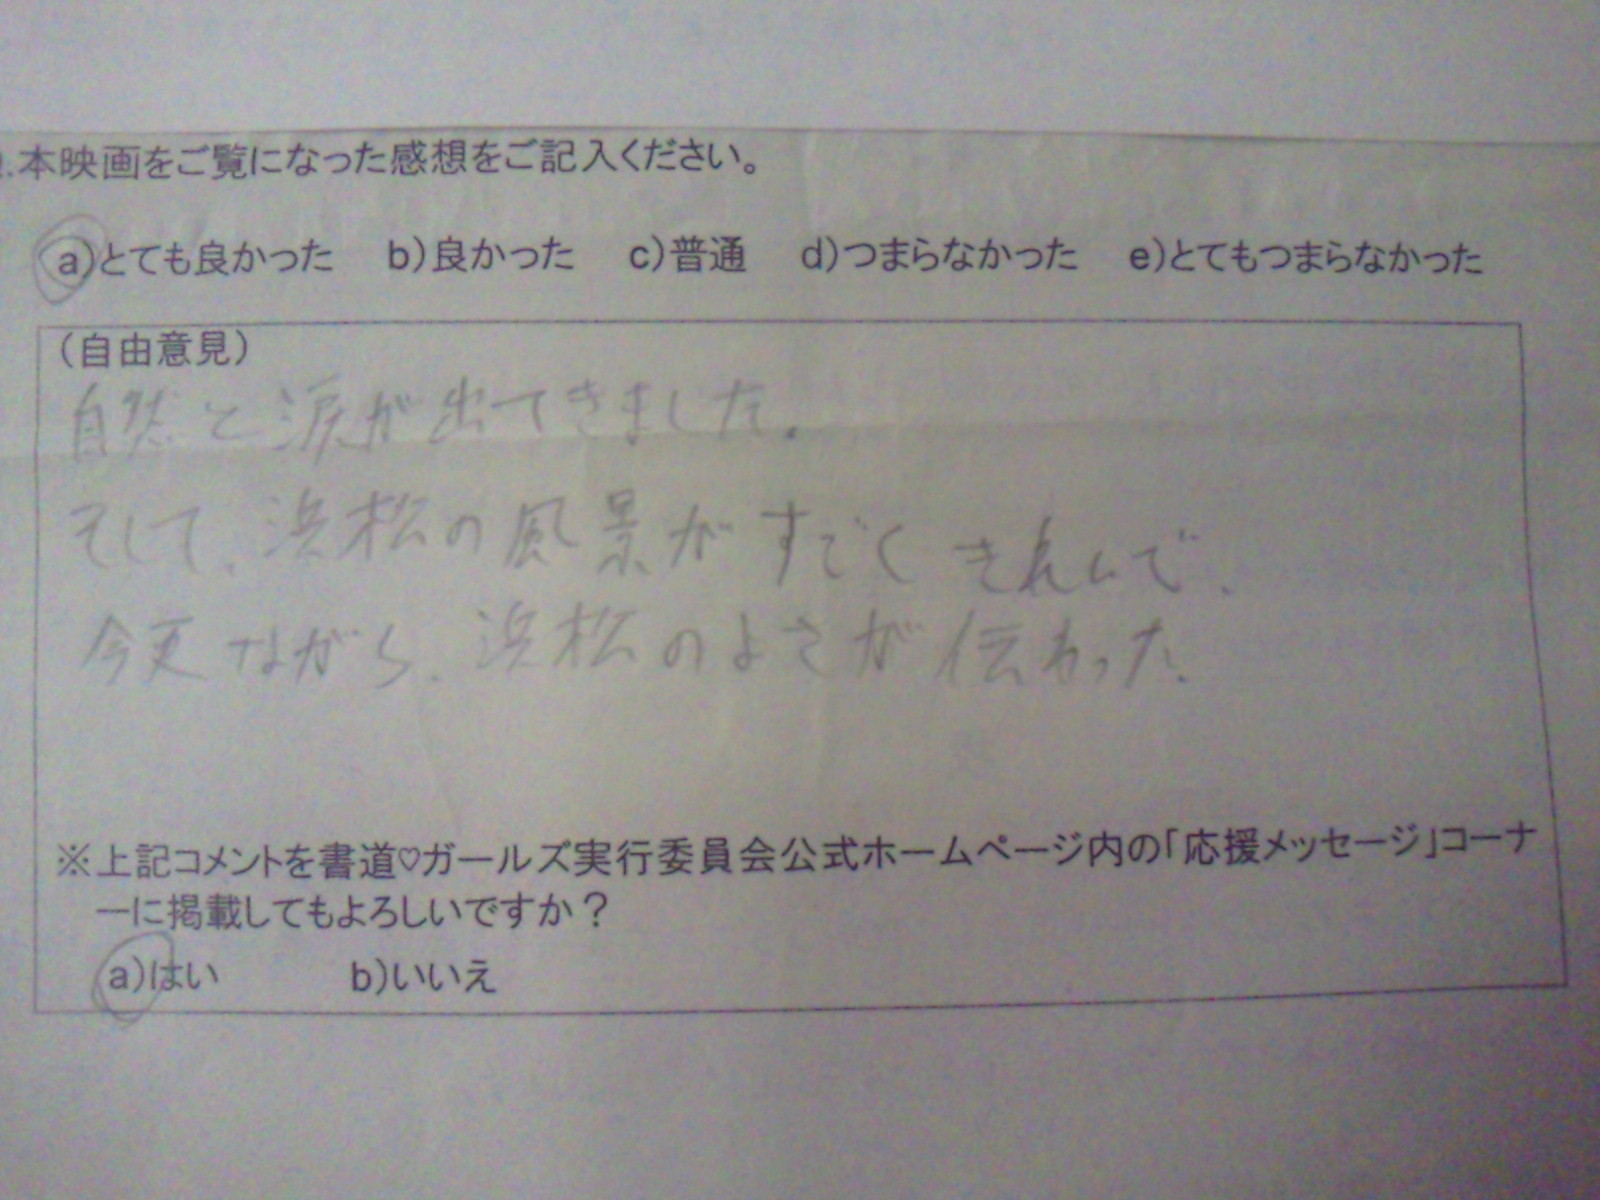 .本映画をご覧になった感想をご記入ください。
a)とても良かった b)良かった c)普通 d)つまらなかった e)とてもつまらなかった
(自由意見)
自然と涙が出てきました。
そして、浜松の風景がすごくきれいで、
今更ながら、浜松のよさが伝わった。
※上記コメントを書道♡ガールズ実行委員会公式ホームページ内の「応援メッセージ」コーナ
ーに掲載してもよろしいですか？
a)はい b)いいえ